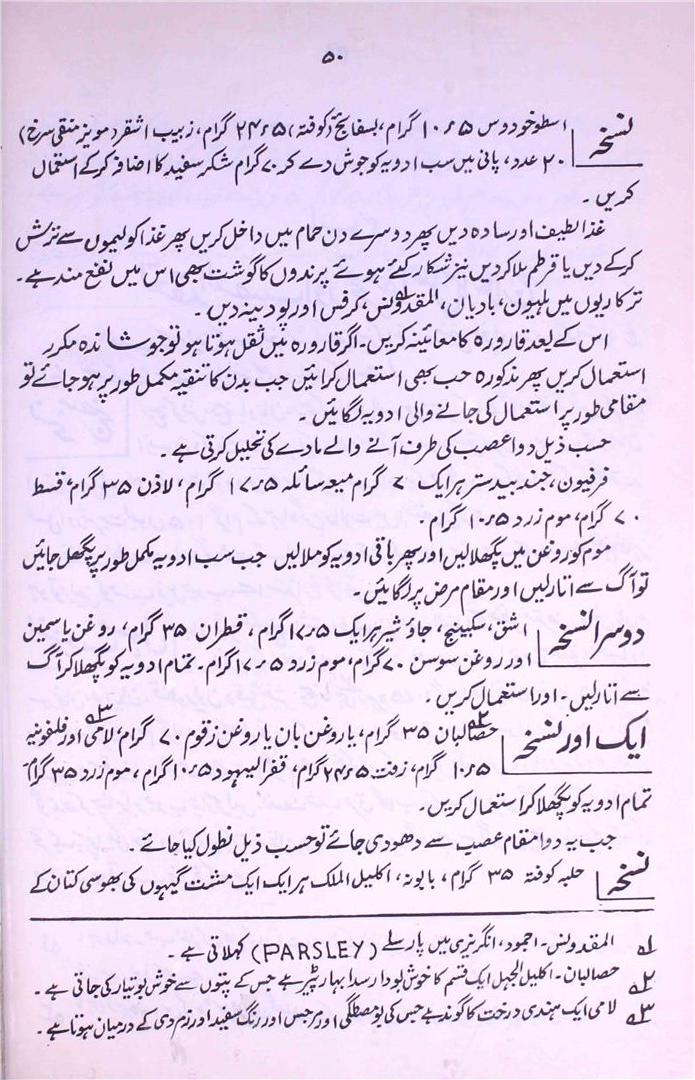 ۵۰
نسخہ اسطوخودوس ۱۰٫۵ گرام، بسفائج (کوفتہ) ۲۴٫۵ گرام، زبیب اشقر (مویز منقی سرخ)
۲۰ عدد، پانی میں سب ادویہ کو جوش دے کر ۷۰ گرام شکر سفید کا اضافہ کرکے استعمال
کریں۔
غذا لطیف اور سادہ دیں پھر دوسرے دن حمام میں داخل کریں پھر غذا کو لیموں سے ترش
کرکے دیں یا قرطم ملا کر دیں نیز شکار کئے ہوئے پرندوں کا گوشت بھی اس میں نفع مند ہے۔
ترکاریوں میں ہلیون، بادیان، المقدونس۱ے، کرفس اور پودینہ دیں۔
اس کے بعد قارورہ کا معائینہ کریں۔ اگر قارورہ میں ثقل ہوتا ہو تو جوشاندہ مکرر
استعمال کریں پھر مذکورہ حب بھی استعمال کرائیں جب بدن کا تنقیہ مکمل طور پر ہو جائے تو
مقامی طور پر استعمال کی جانے والی ادویہ لگائیں۔
حسب ذیل دوا عصب کی طرف آنے والے مادے کی تحلیل کرتی ہے۔
فرفیون، جند بیدستر ہر ایک ۷۰ گرام میعہ سائلہ ۱۷٫۵ گرام، لاذن ۳۵ گرام، قسط
۷۰ گرام، موم زرد ۱۰٫۵ گرام۔
موم کو روغن میں پگھلا لیں اور پھر باقی ادویہ کو ملا لیں جب سب ادویہ مکمل طور پر پگھل جائیں
تو آگ سے اتار لیں اور مقام مرض پر لگائیں۔
دوسرا نسخہ اشق، سکبینج، جاؤ شیر ہر ایک ۱۷٫۵ گرام، قطران ۳۵ گرام، روغن یاسمین
اور روغن سوسن ۷۰ گرام، موم زرد ۱۷٫۵ گرام۔ تمام ادویہ کو پگھلا کر آگ
سے اتار لیں۔ اور استعمال کریں۔
ایک اور نسخہ حصالبان۲ے ۳۵ گرام، یا روغن بان یا روغن زقوم ۷۰ گرام، لامی۳ے اور فلفونیہ
۱۰٫۵ گرام، زفت ۲۴٫۵ گرام، قفر الیہود ۱۰٫۵ گرام، موم زرد ۳۵ گرام
تمام ادویہ کو پگھلا کر استعمال کریں۔
جب یہ دوا مقام عصب سے دھو دی جائے تو حسب ذیل نطول کیا جائے
نسخہ حلبہ کوفتہ ۳۵ گرام، بابونہ، اکلیل الملک ہر ایک ایک مشت گیہوں کی بھوسی کتان کے
۱ے المقدونس۔ اجمود، انگریزی میں پارسلے (PARSLEY) کہلاتی ہے۔
۲ے حصالبان۔ اکلیل الجبل ایک قسم کا خوش بودار سدا بہار پیڑ ہے جس کے پتوں سے خوش بو تیار کی جاتی ہے۔
۳ے لامی ایک ہندی درخت کا گوند ہے جس کی بو مصطگی اور مر جیسی اور رنگ سفید اور زردی کے درمیان ہوتا ہے۔